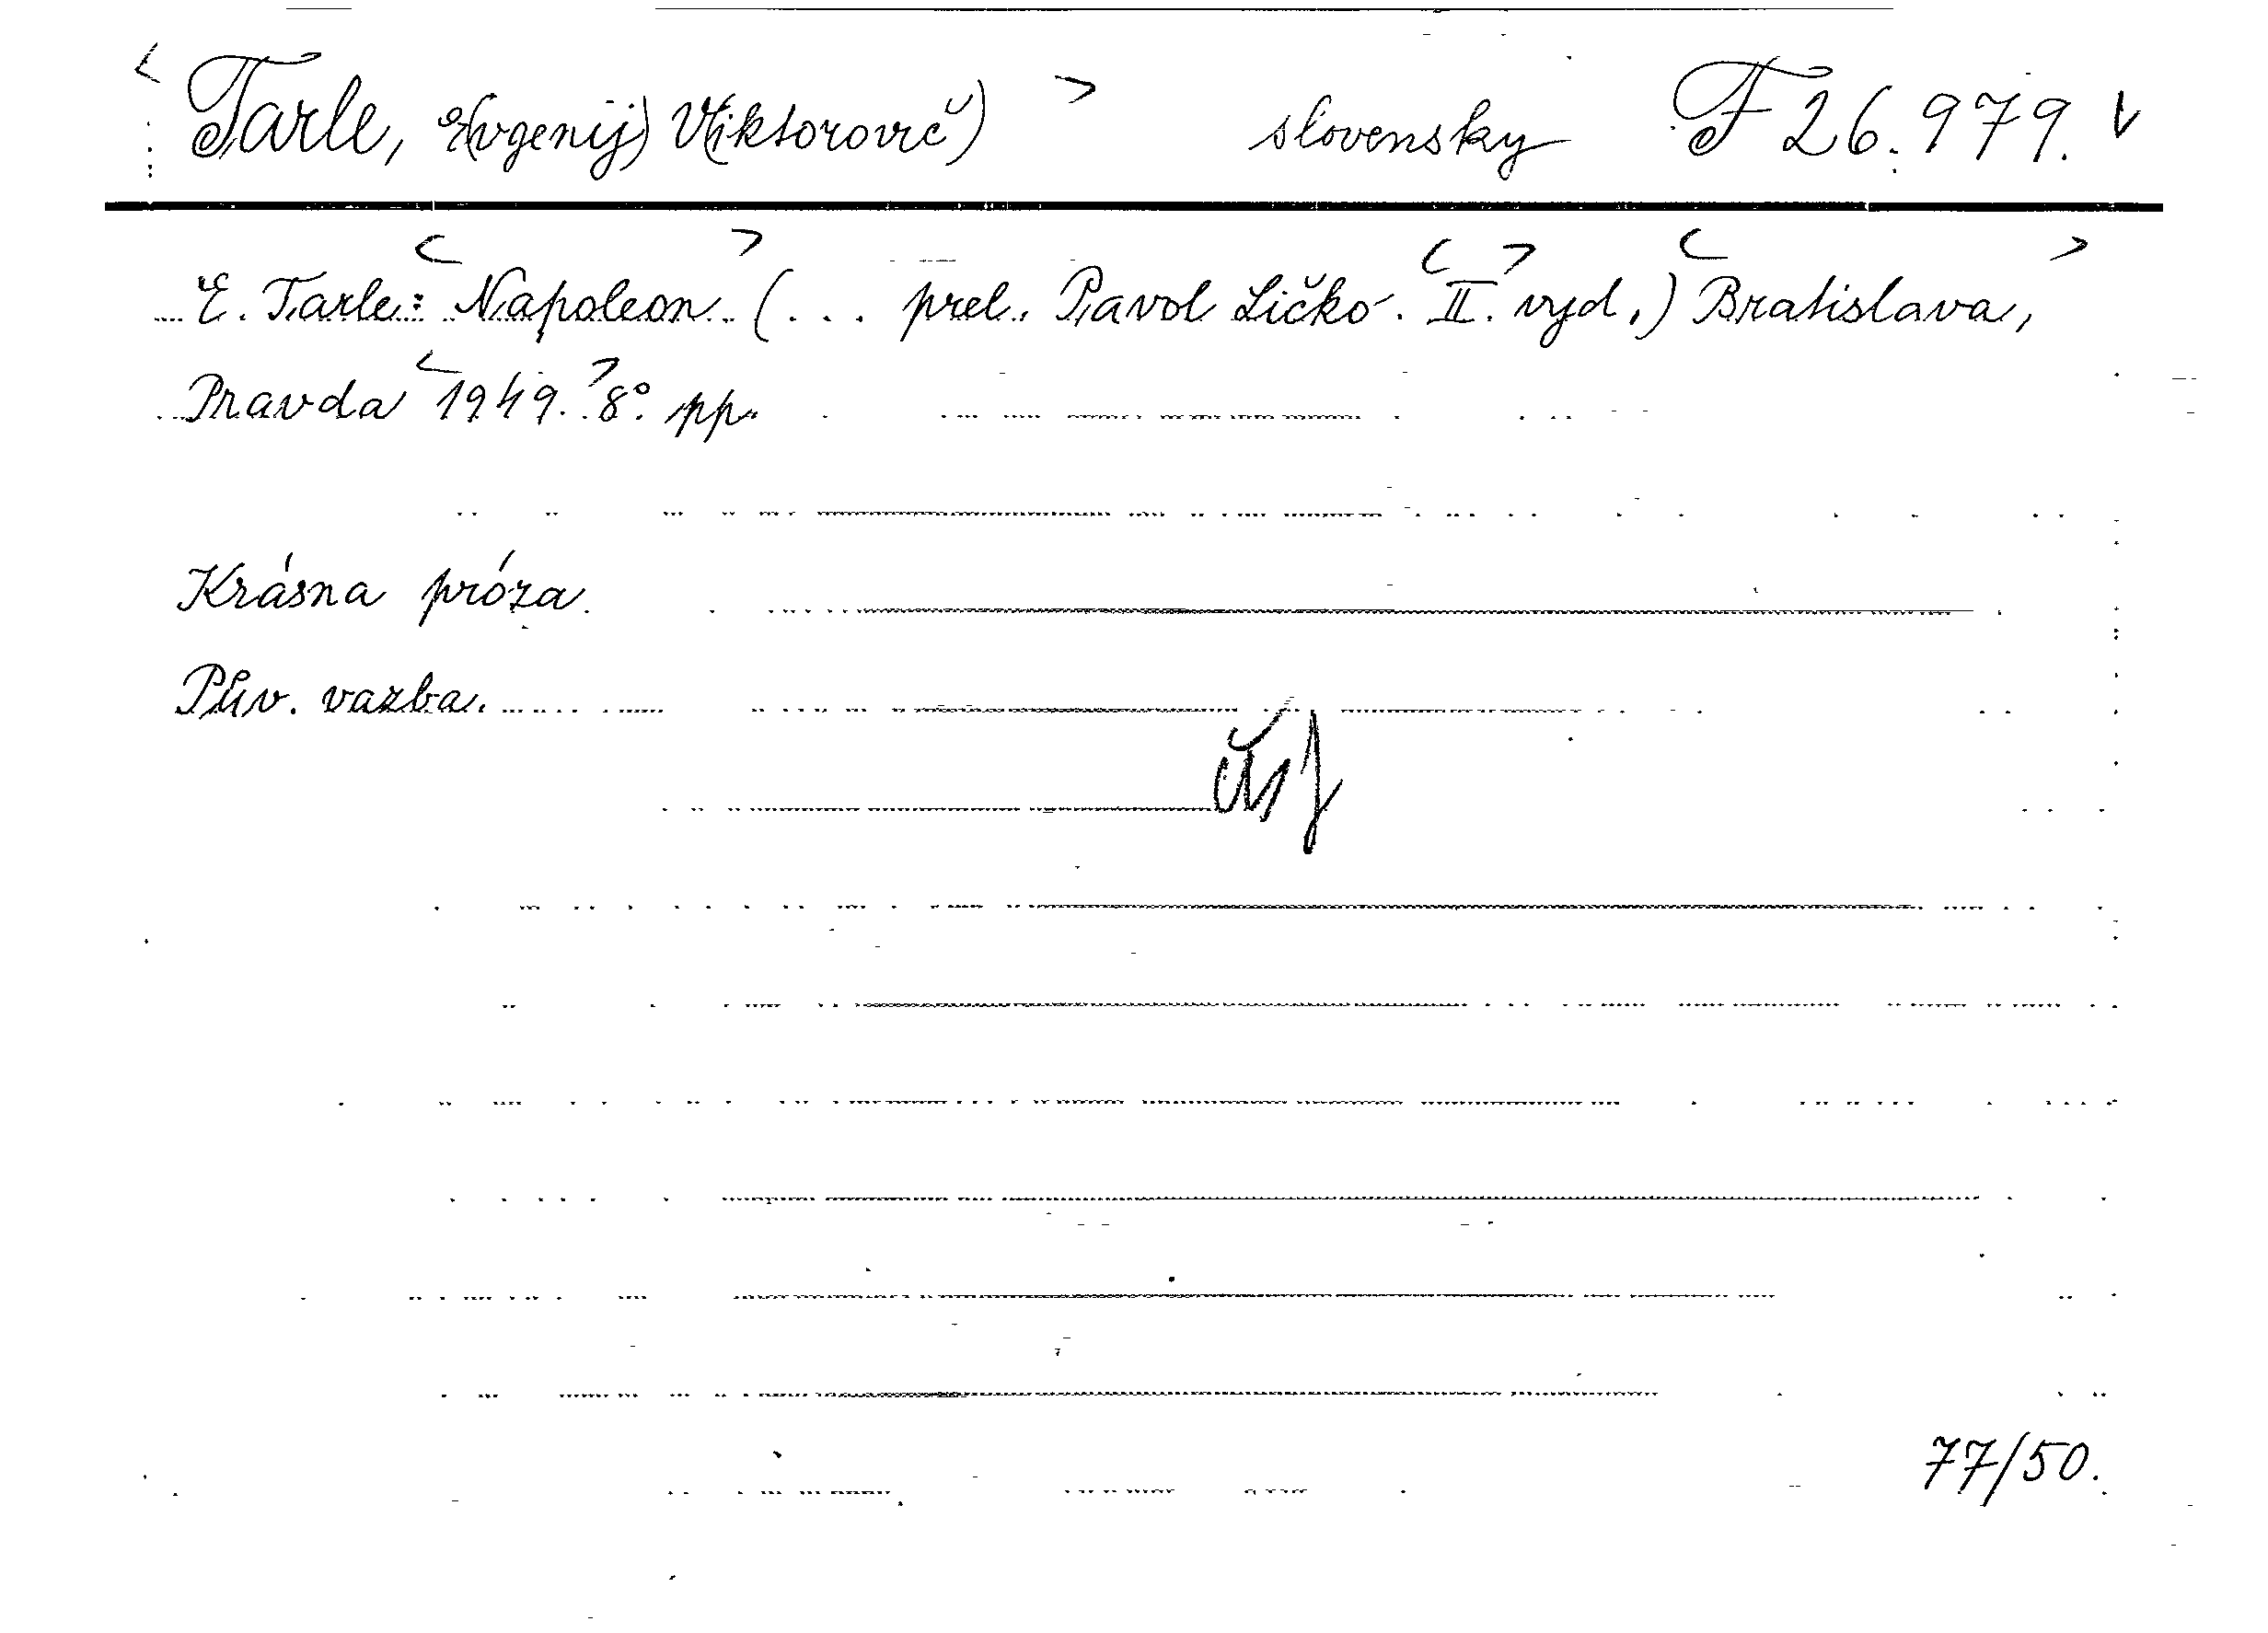 < Tarle, E(vgenij) V(iktorovič) > slovensky F 26.979. v
E. Tarle: <Napoleon> (... prel. Pavol Ličko. <II.> vyd.) <Bratislava,>
Pravda <1949.> 8°. pp.
Krásna próza.
Pův. vazba.
77/50.